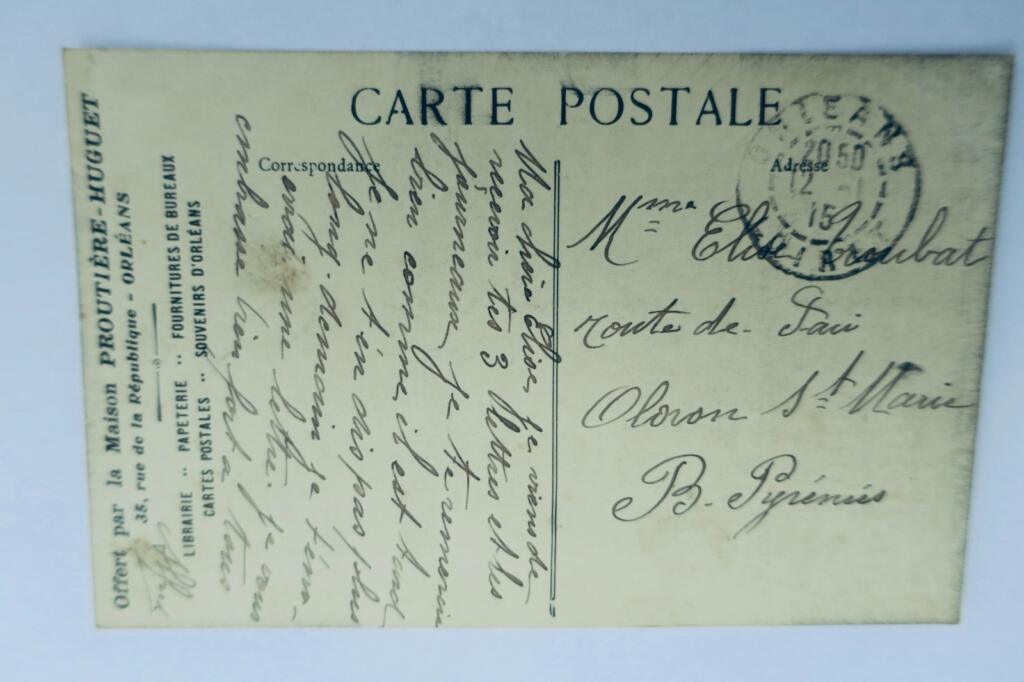 CARTE POSTALE
Correspondance
Adresse
ORLEANS
20 50
12
15
LOIRET
Mme Elise
route de Pau
Oloron St Marie
B. Pyrénées
Ma chère Elise, je viens de
recevoir tes 3 lettres et les
journeaux je te remercie
bien comme il est tard
je ne t'en dis pas plus
long. demain je t'en
avoir une lettre. je vous
embrasse bien fort a tous
Offert par la Maison PROUTIÈRE-HUGUET
35, rue de la République - ORLÉANS
LIBRAIRIE .. PAPETERIE .. FOURNITURES DE BUREAUX
CARTES POSTALES .. SOUVENIRS D'ORLÉANS